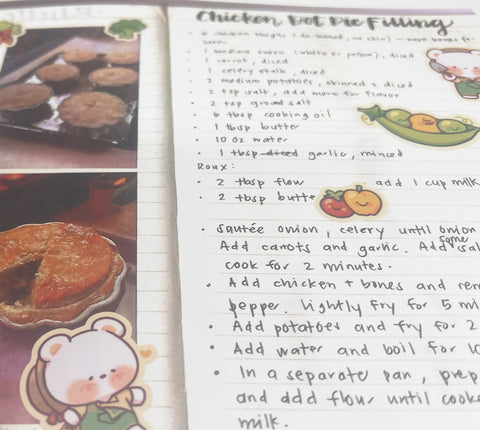 Chicken Pot Pie Filling
6 chicken thighs (de-boned, no skin) – save bones for
1 medium onion (white or yellow), diced
1 carrot, diced
1 celery stalk, diced
2 medium potatoes, skinned & diced
2 tsp salt, add more for flavor
2 tsp ground salt
6 tbsp cooking oil
1 tbsp butter
10 oz water
1 tbsp diced garlic, minced
Roux:
2 tbsp flour add 1 cup milk
2 tbsp butte
sautée onion, celery until onion
Add carrots and garlic. Add some sal
cook for 2 minutes.
Add chicken + bones and rem
pepper. Lightly fry for 5 mi
Add potatoes and fry for 2
Add water and boil for 10
In a separate pan, prep
and add flour until cooke
milk.